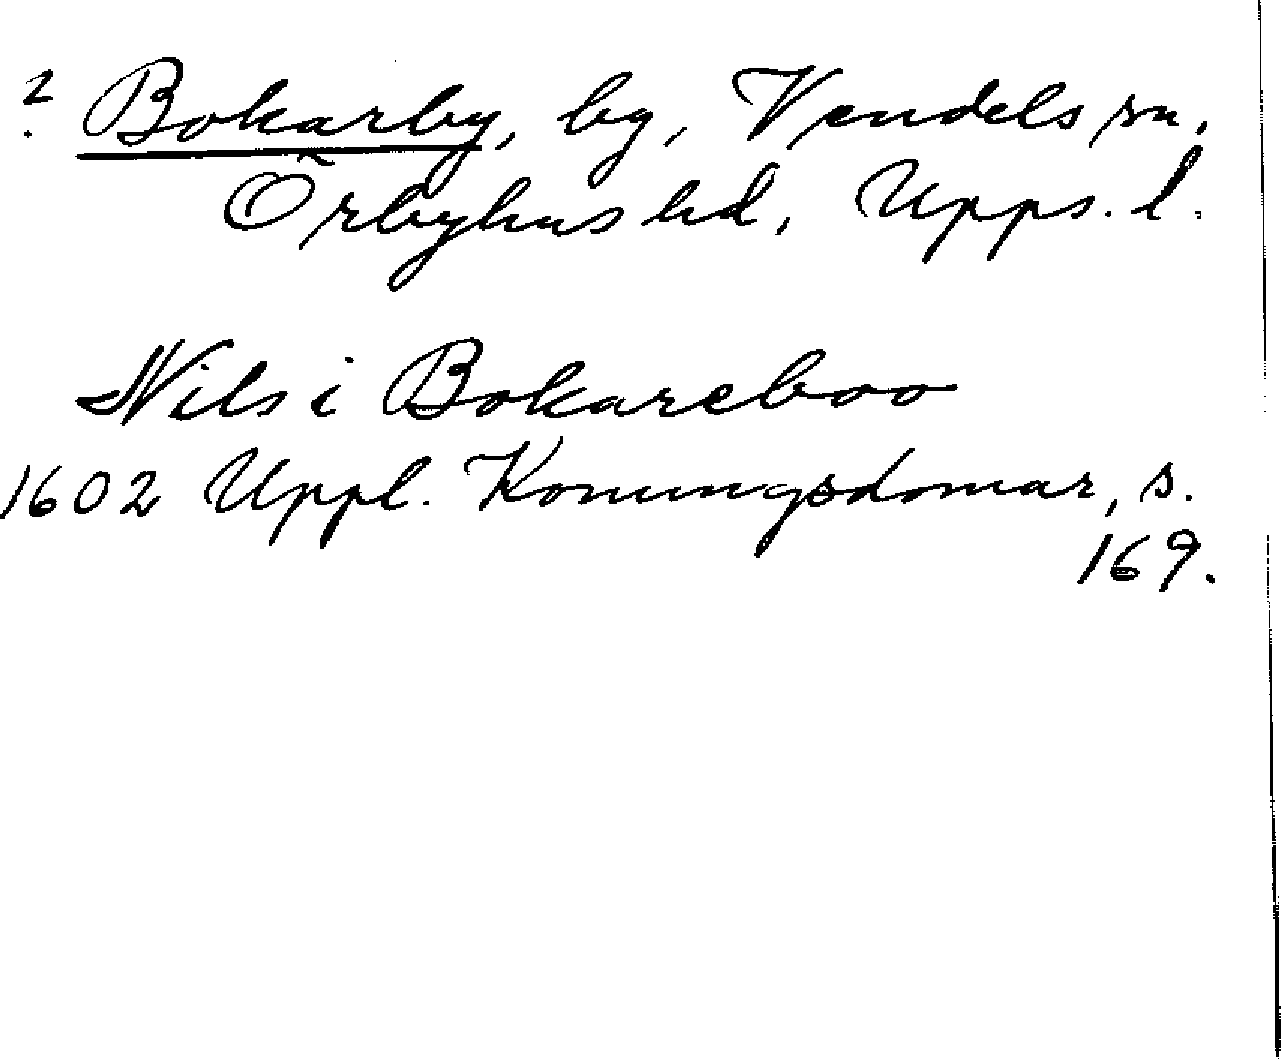 ? Bokarby, by, Vendels sn,
Örbyhus hd, Upps. l.
Nils i Bokareboo
1602 Uppl. Konungsdomar, s.
169.